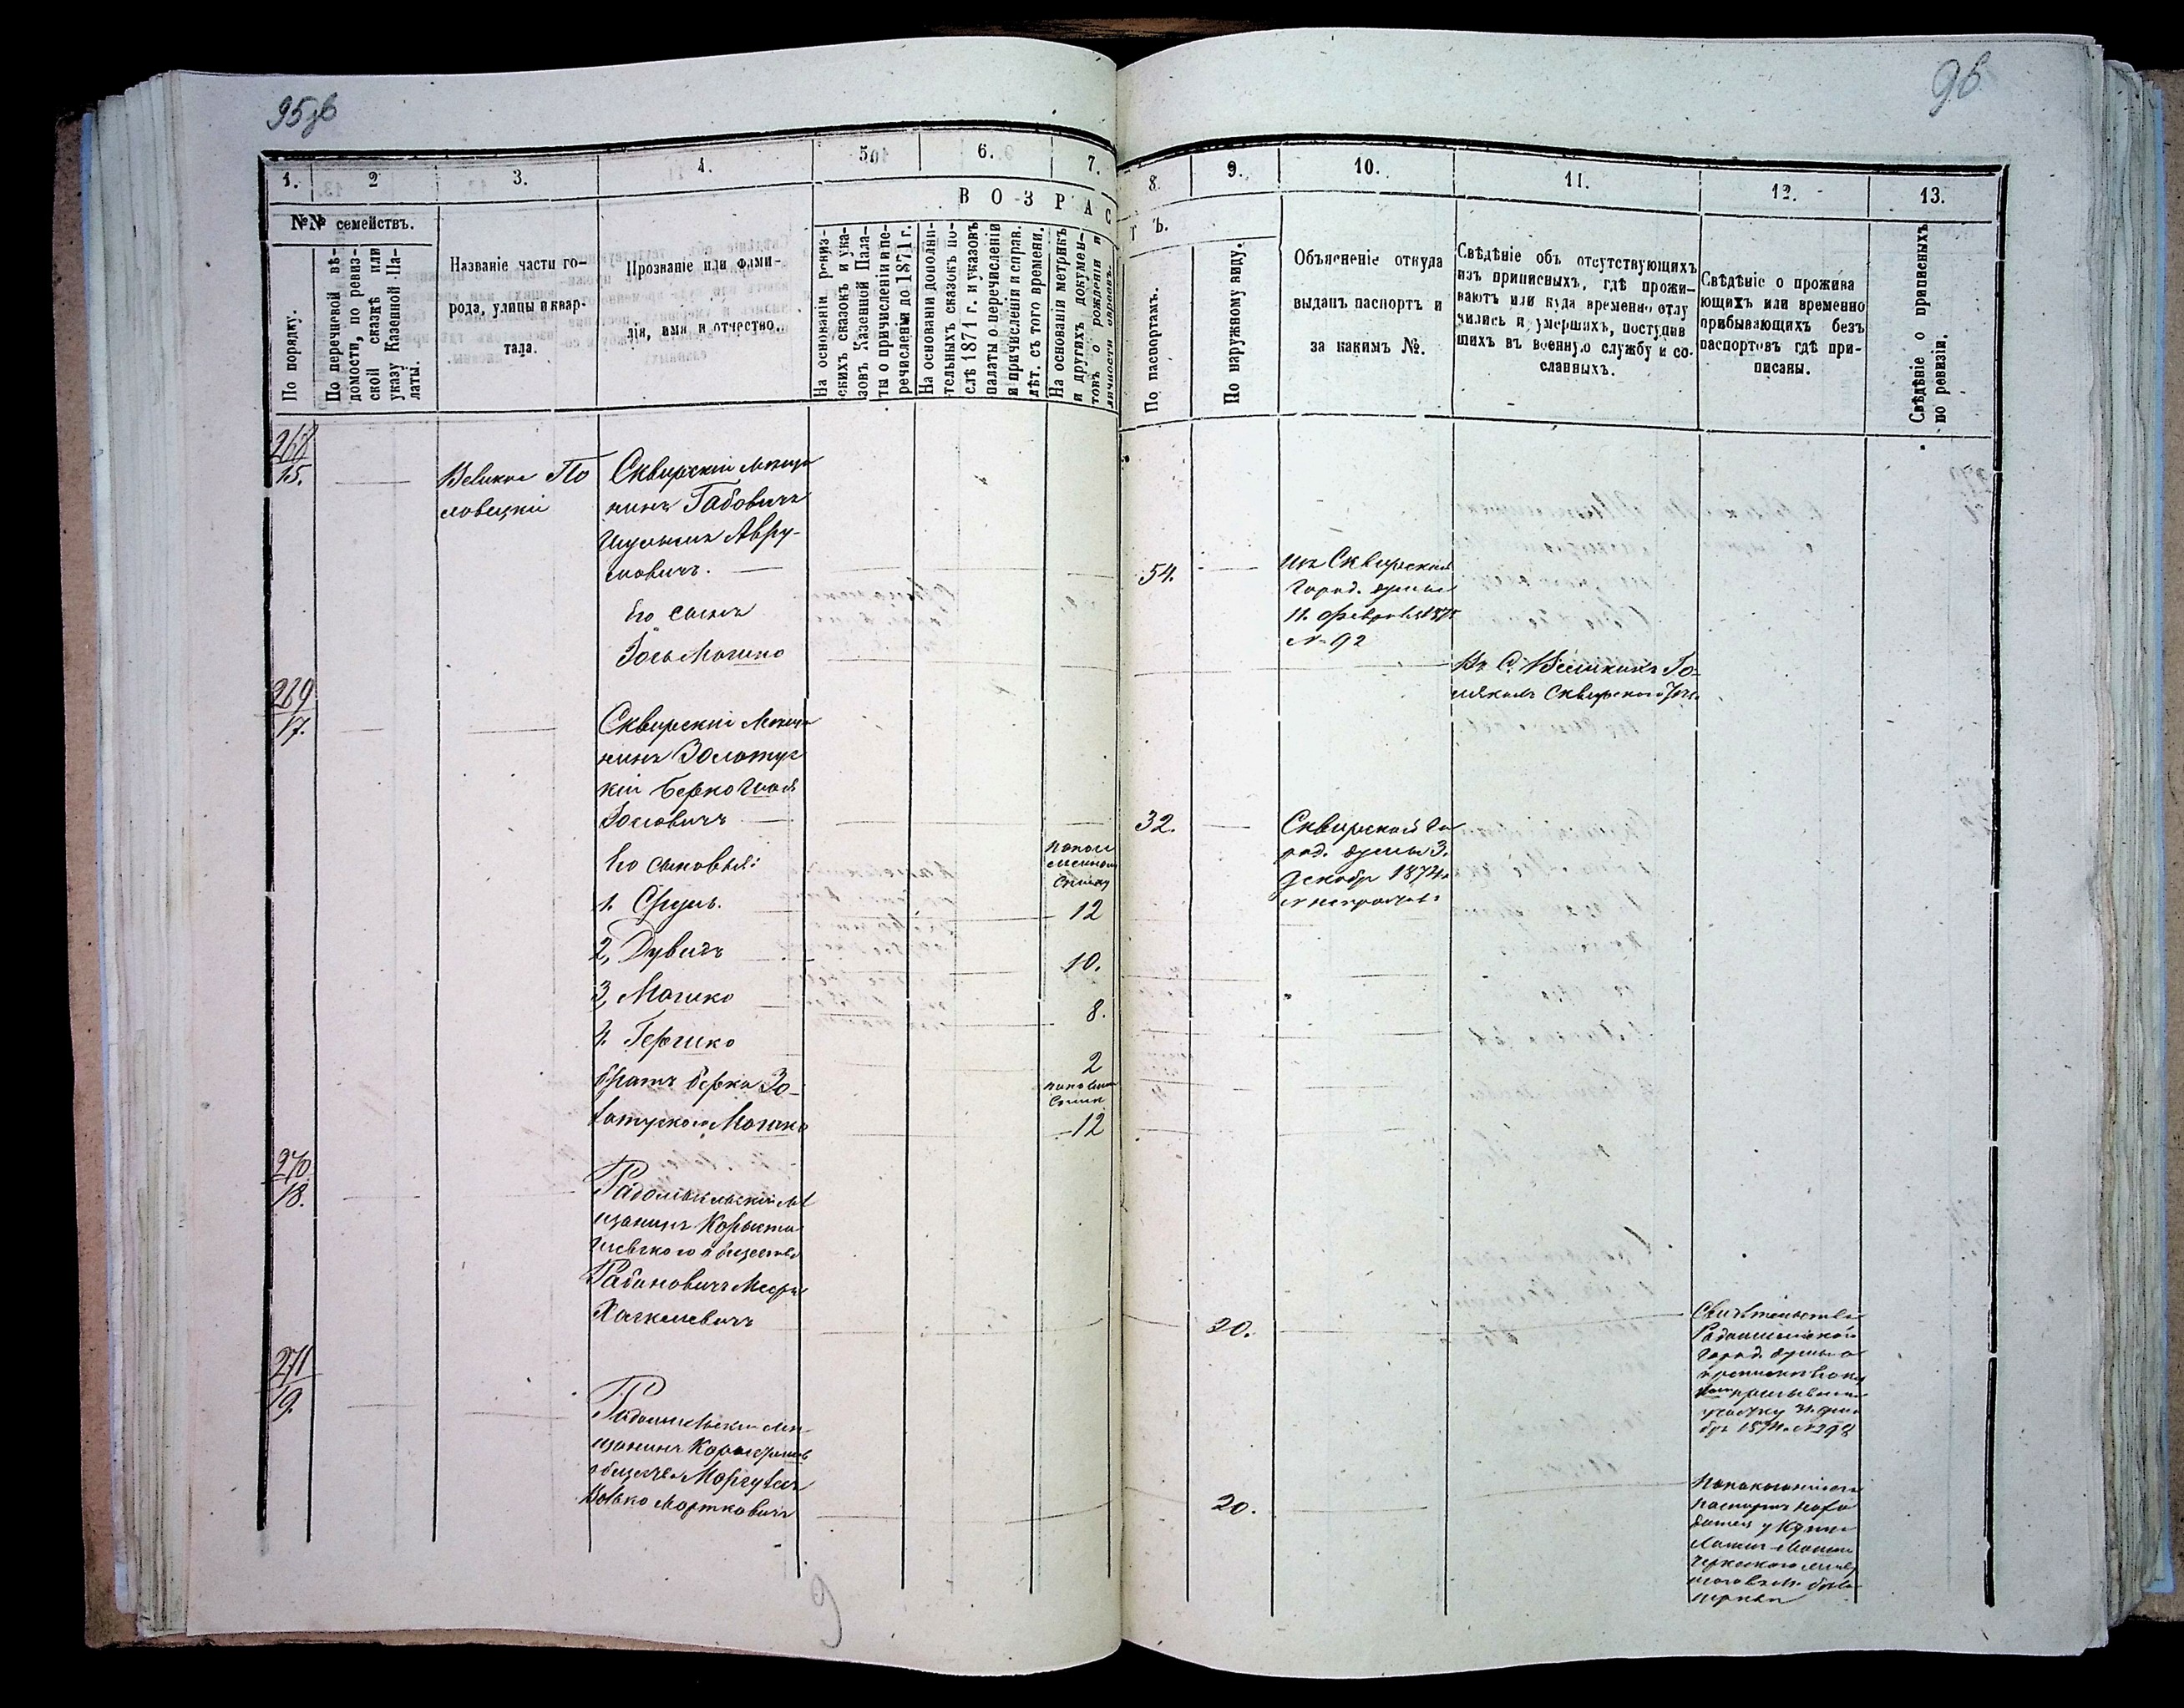 95зв
96
1.
2
3.
4.
5
6.
7.
8.
9.
10.
11.
12.
13.
№№ семействъ.
ВОЗРАС
Т Ъ.
По порядку.
По перечневой вѣ-
домости, по ревиз-
ской сказкѣ или
указу Казенной Па-
латы.
Названіе части го-
рода, улицы и квар-
тала.
Прозваніе или фами-
лія, имя и отчество.
На основаніи ревиз-
скихъ сказокъ и ука-
зовъ Казенной Пала-
ты о причисленіи и пе-
речисленіи до 1871 г.
На основаніи дополни-
тельныхъ сказокъ по-
слѣ 1871 г. и указовъ
палаты о перечисленіи
и причисленіи и справ.
лѣт. съ того времени.
На основаніи метрикъ
и другихъ докумен-
товъ о рожденіи и
личности
По паспортамъ.
По наружному виду.
Объясненіе откуда
выданъ паспортъ и
за какимъ №.
Свѣдѣніе объ отсутствующихъ
изъ приписныхъ, гдѣ прожи-
ваютъ или куда временно отлу
чились и умершихъ, поступив
шихъ въ военную службу и со-
сланныхъ.
Свѣдѣніе о прожива
ющихъ или временно
прибывающихъ безъ
паспортовъ гдѣ при-
писаны.
Свѣдѣніе о приписныхъ
по ревизіи.
268
15.
Великое По
ловецкіи
Сквирскіи мѣща
нинъ Габовичъ
Авру-
мовичъ.
Его сынъ
Іось Мошко
54.
изъ Сквирской
Город. думы
11. февраля 1875
№ 92
Въ С. Великихъ Го-
лякахъ Сквирского уѣз.
269
17.
Сквирскіи Мѣща
нинъ Золотус
кіи Берко
Іосіовичъ
32.
Сквирской Го
род. думы 3.
Декабр 1874
Его сыновья:
1. Сруль.
12
2, Дувидъ
10.
3, Мошко
8.
4. Гершко
2
братъ Берка Зо-
лотуского Мошко
12
270
18.
Радомысльскіи мѣ
щанинъ Коросты
шевского общества
Рабиновичъ Мееръ
Хаскелевичъ
20.
Свидѣтельство
Радомысльской
Город. думы о
припискѣ
участку 31. дека
бря 1874 № 298
271
19.
Радомысльскіи мѣ
щанинъ Коростышев
общества Маргулісъ
Волько Мортковичъ
20.
паспортъ
6